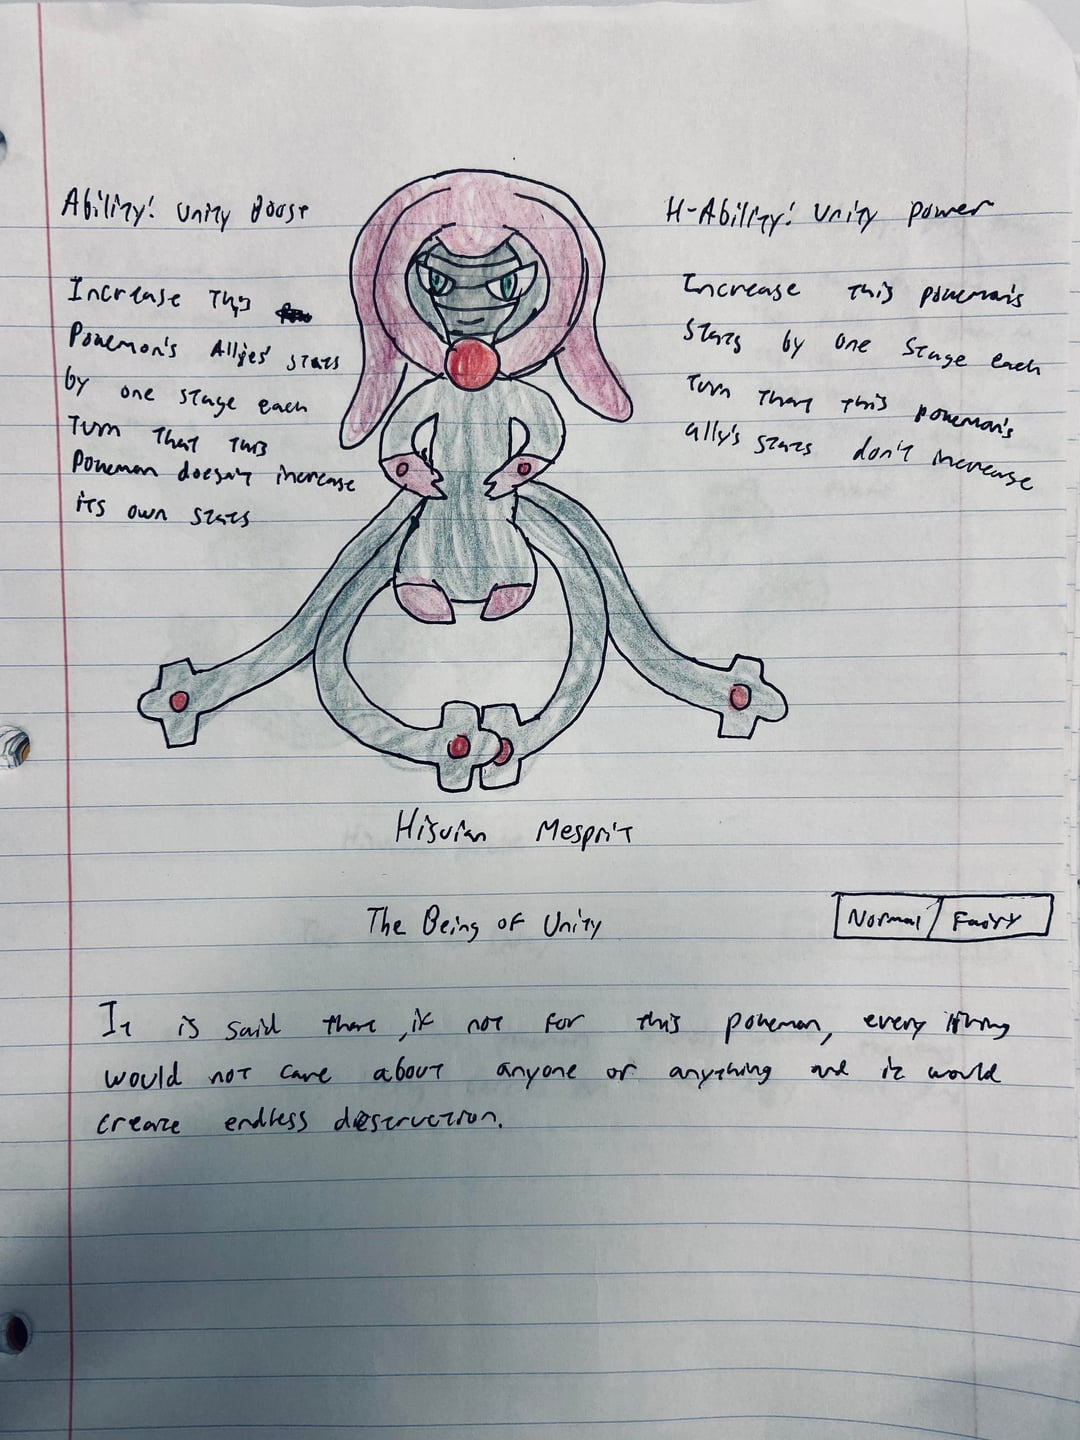 Ability: Unity Boost
Increase This
Pokemon's Allies' stats
by one stage each
Turn That This
Pokemon doesn't increase
its own stats
H-Ability: Unity Power
Increase this pokemon's
stats by one stage each
Turn that this pokemon's
ally's stats don't increase
Hisuian Mesprit
The Being of Unity
Normal / Fairy
It is said that, if not for this pokemon, every
would not care about anyone or anything and it would
create endless destruction.